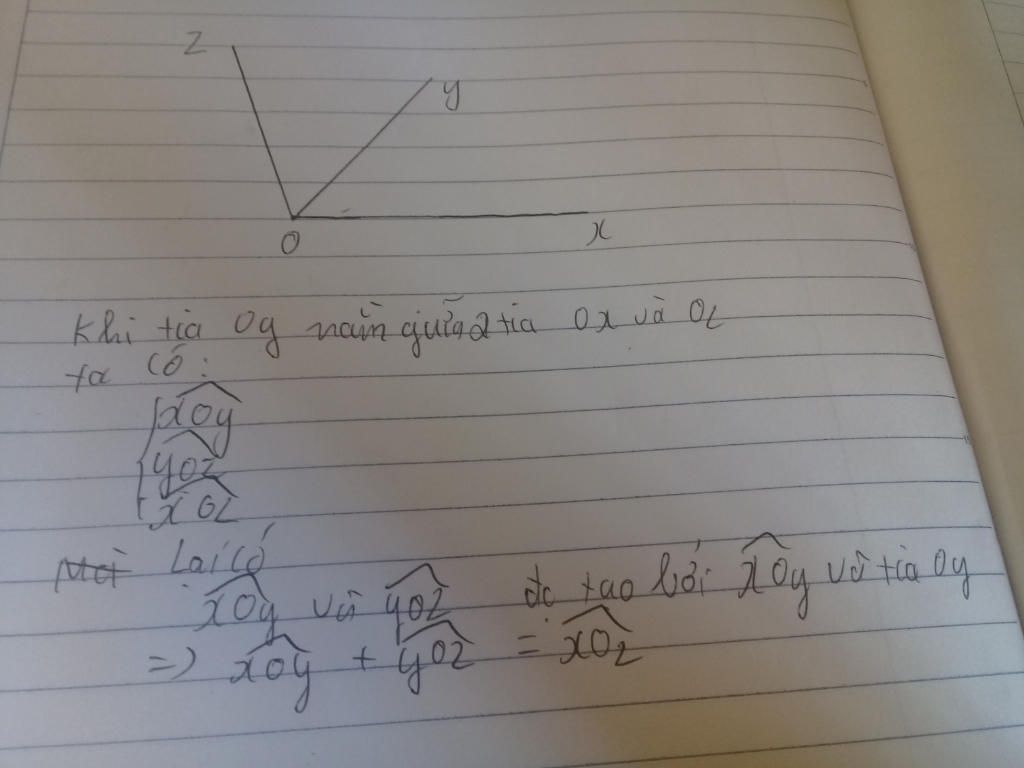 z
y
O
x
Khi tia Oy nằm giữa 2 tia Ox và Oz
ta có:
xOy
yOz
xOz
Mà Lại có
xOy và yOz đc tạo bởi xOy và tia Oy
=> xOy + yOz = xOz